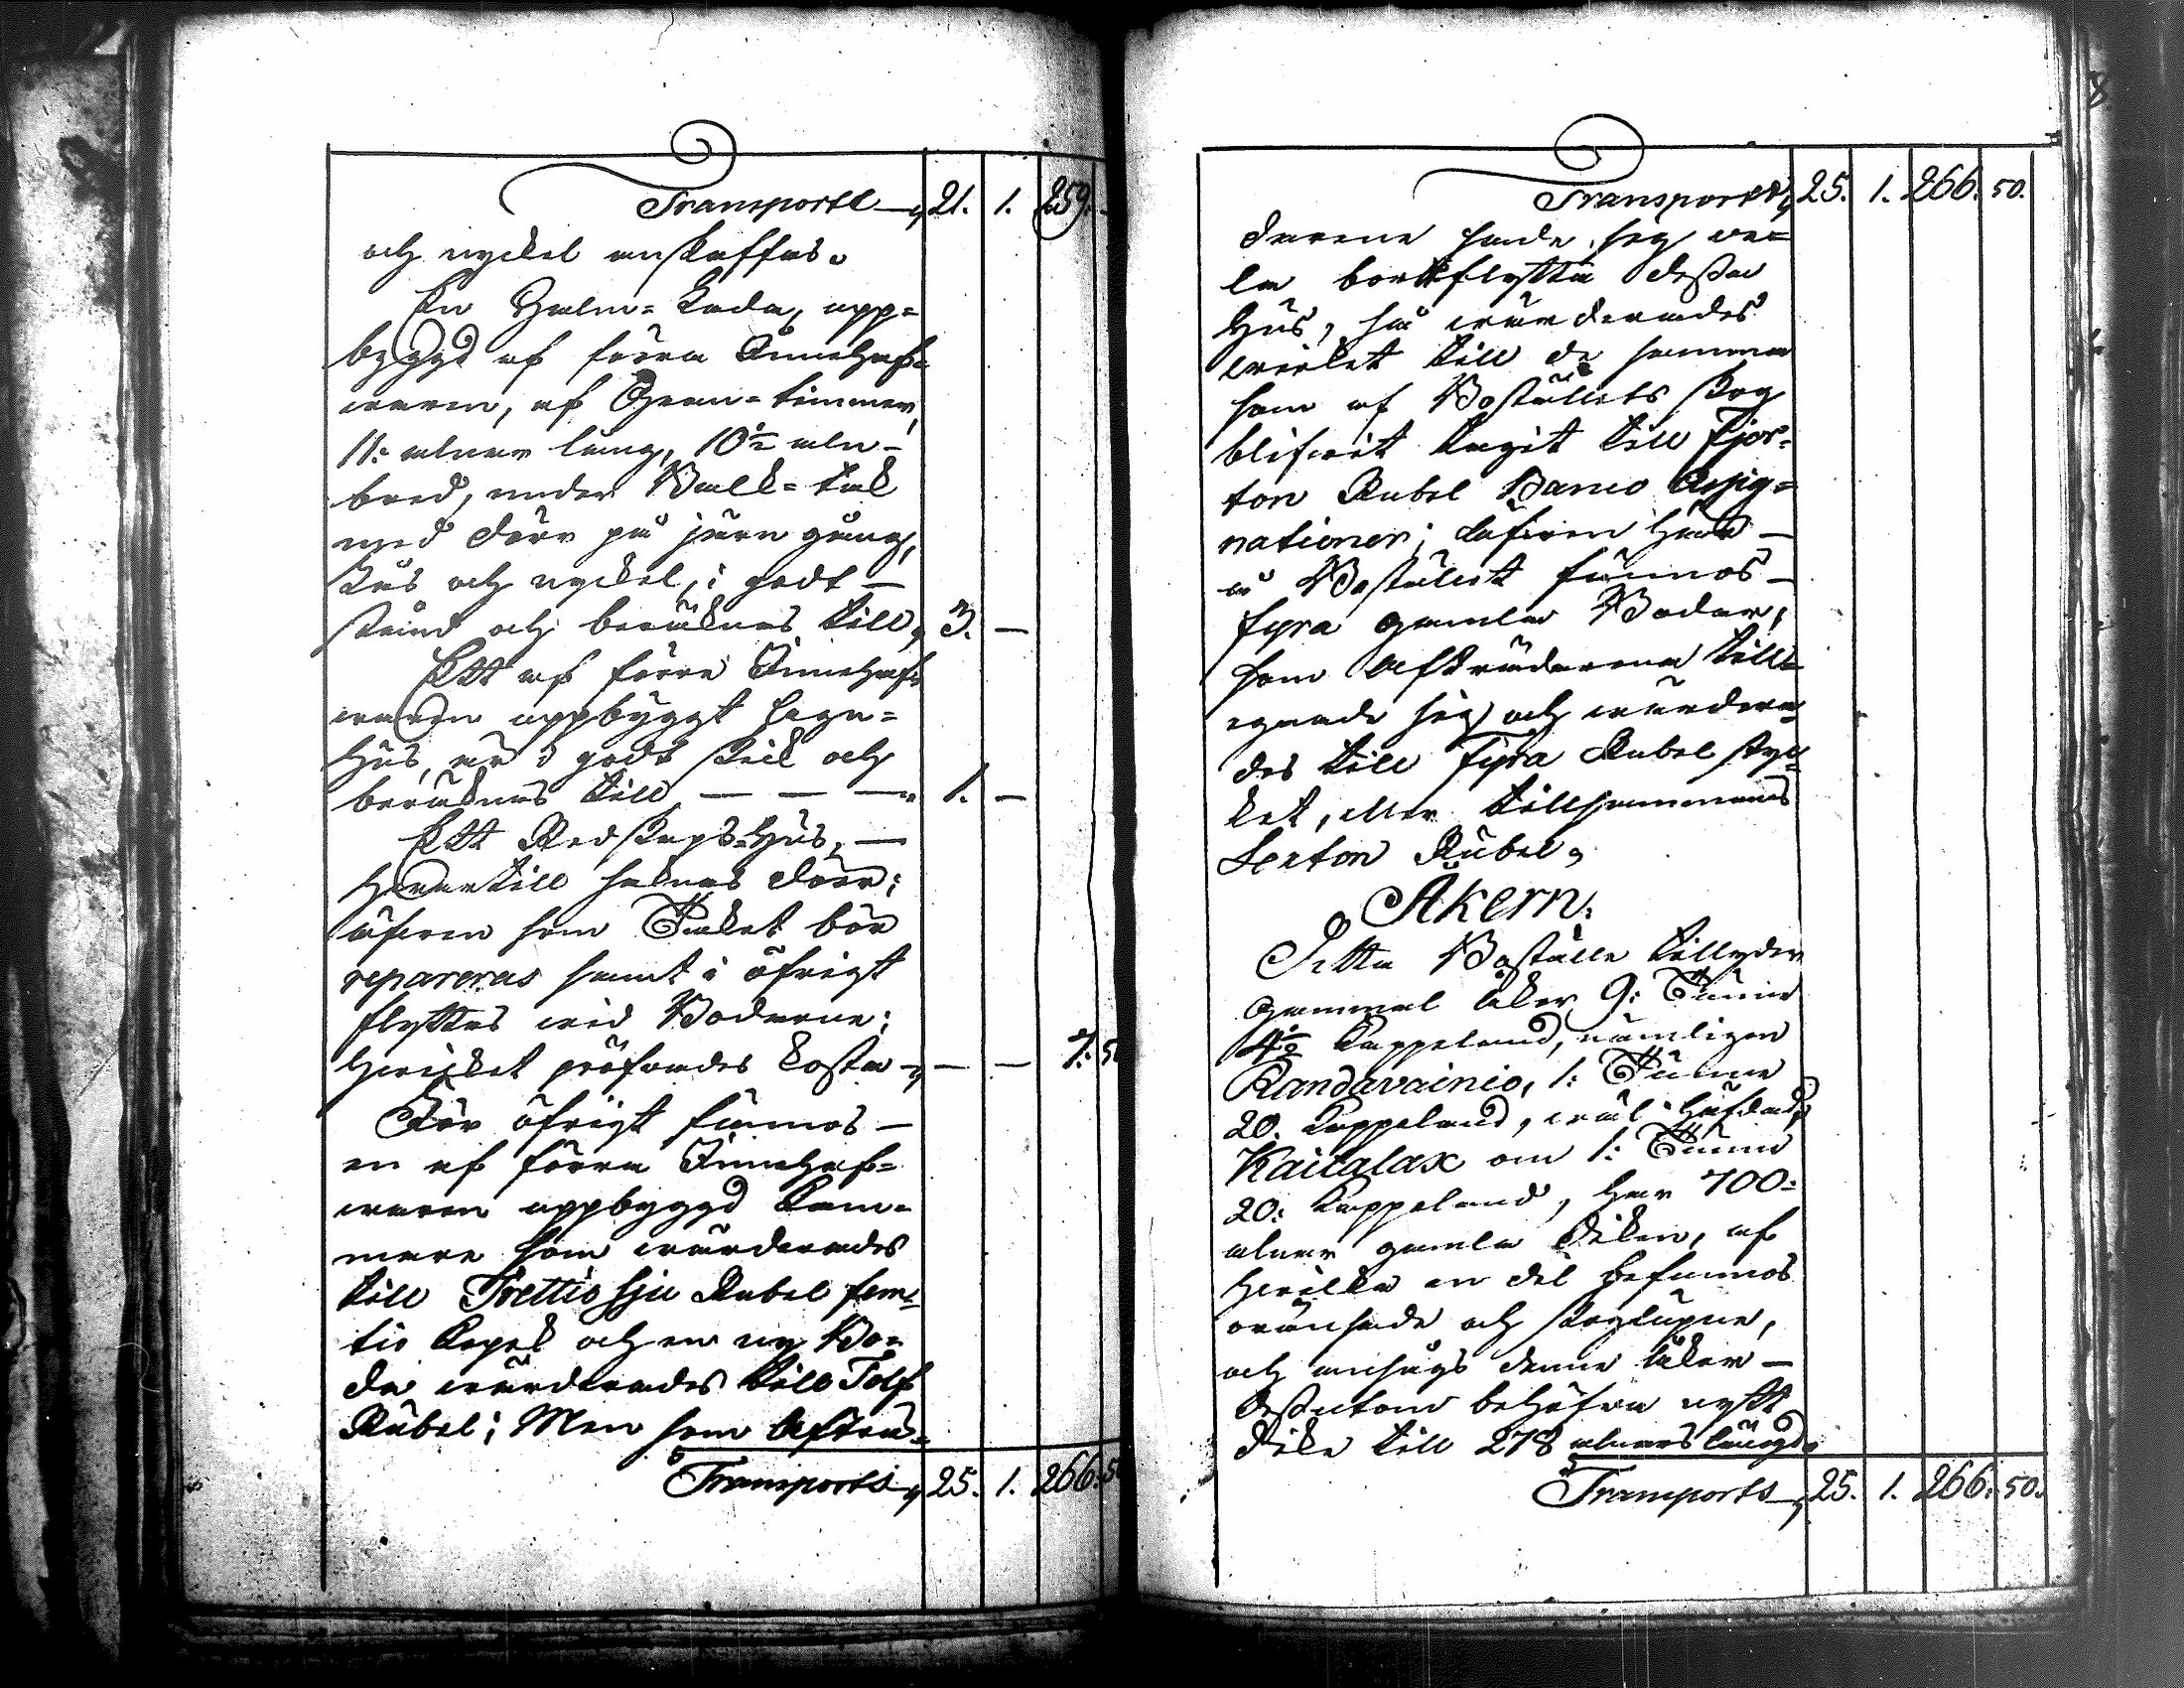 Transport 21. 1. 259. -
och nyckel anskaffas.
En Halm=Lada, upp=
bygd af förra Innehaf=
waren, af Gran=timmer,
11: alnar lång, 10½ aln
bred, under Balk=tak
med dörr på järn gång,
Lås och nyckel, i godt
stånd och beräknas till, 3. —
Ett af förra Innehaf=
waren uppbyggt
Hus, är i godt skick och
beräknas till — — — 1. —
Ett Redskaps=Hus, —
Hwartill saknas dörr;
äfwen som Taket bör
repareras samt i öfrigt
flyttas wid Boderne;
Hwilket pröfwades kosta — — — 7. 50
För öfrigt finnes —
en af förra Innehaf=
waren uppbyggd Kam=
mare som wärderades
till Trettio sju Rubel fem=
tio Kopek och en ny Bo=
da wärderades till Tolf
Rubel; Men som Afträ=
Transport 25. 1. 266. 50
Transport 25. 1. 266. 50.
darene sade sig we=
la bortflytta dessa
Hus, så wärderades
wirket till de samma
som af Boställets skog
blifwit tagit till Fjor=
ton Rubel Banco Assig=
nationer; äfwen Har —
å Bostället funnos —
fyra gamla Bodar,
som Afträdarena till=
egnade sig och wärdera=
des till Fyra Rubel styc=
ket, eller tillsammans
Sexton Rubel,
Åkern.
Detta Boställe tillyder
gammal åker 9: Tunne
4½ Kappeland, nämligen
Randavainio, 1: Tunne
20. Kappeland, wäl Häfdad,
Kaitalax om 1: Tunne
20: Kappeland, Har 700=
alnar gamla diken, af
Hwilka en del befunnos
orensade och skoglupne,
och ansågs denne åker —
dessutom behöfwa nytt
dike till 278 alnars längd,
Transport 25. 1. 266. 50.